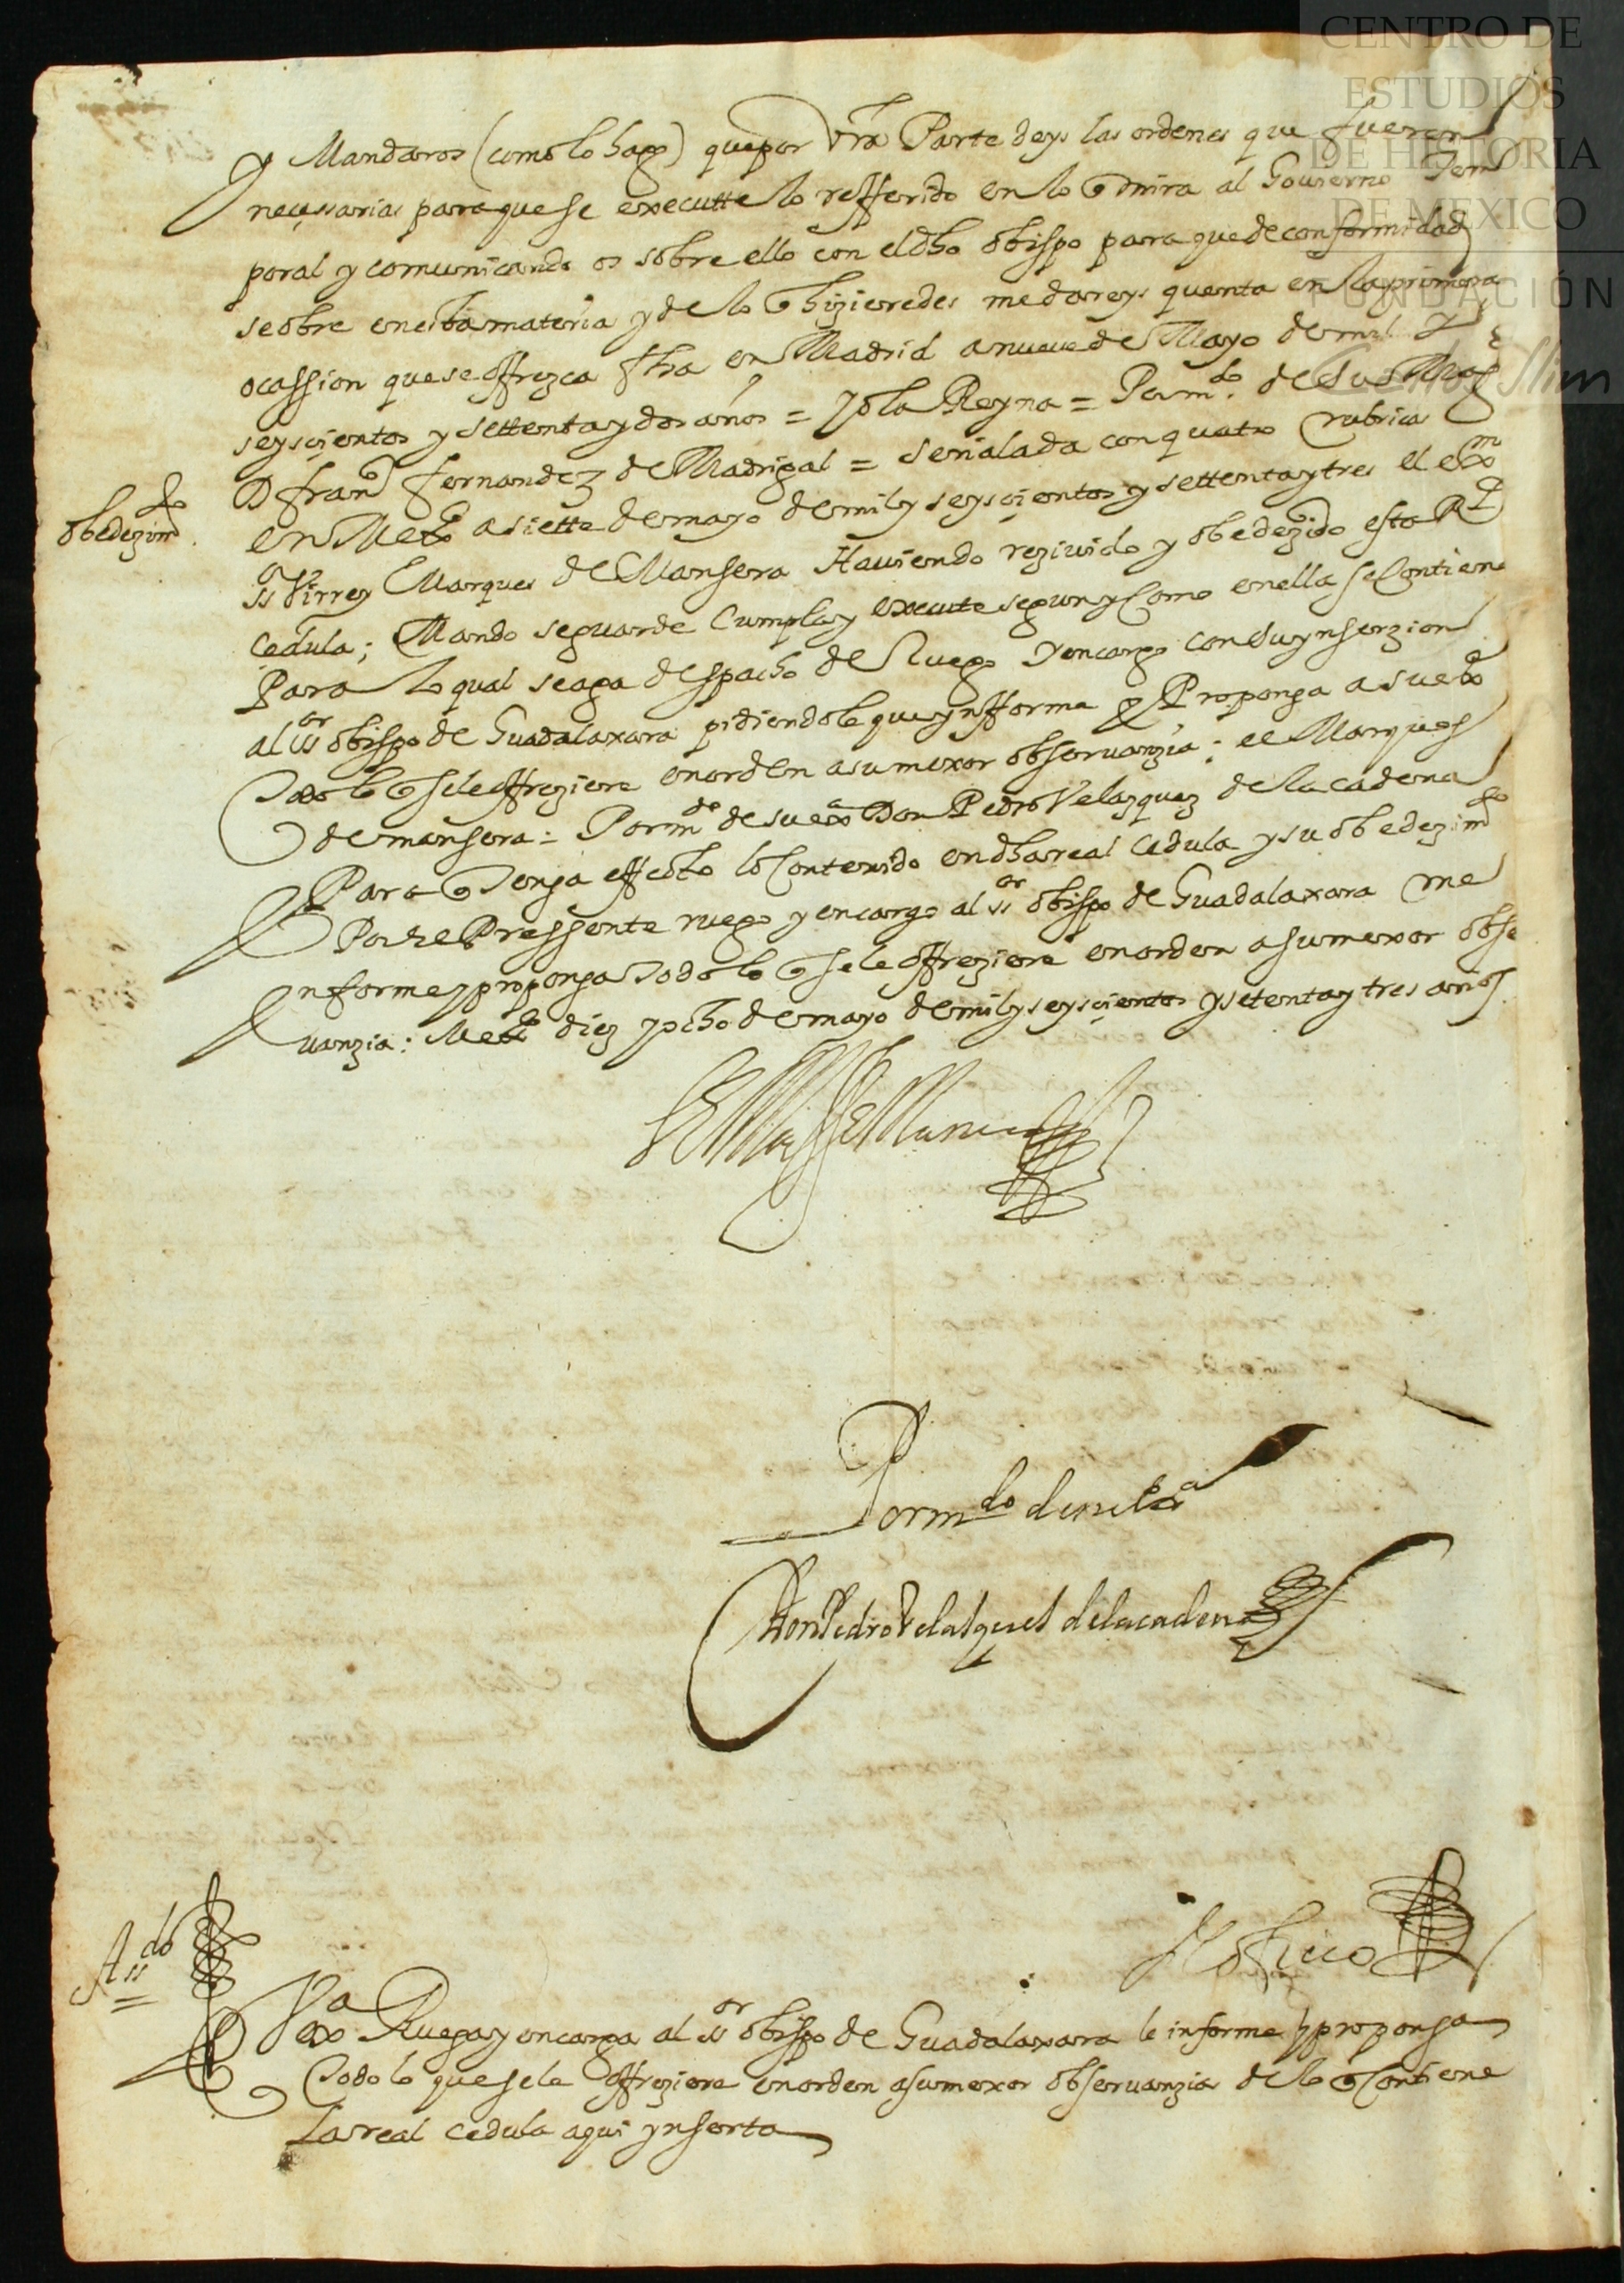 CENTRO DE
ESTUDIOS
DE HISTORIA
DE MEXICO
FUNDACIÓN
Carlos Slim
y Mandaros (como lo hago) que por vra Parte deys las ordenes que fueren
neçessarias para que se executte lo refferido en lo q mira al Gouierno Tem
poral y comunicando os sobre ello con el dho obispo para que de conformidad
se obre en esta materia y de lo q hizieredes me dareys quenta en la primera
ocassion que se offrezca ffha en Madrid a nueue de Mayo de mil y
seysçientos y settenta y dos años = yo la Reyna = Por mdo. de Su Magd
D franco fernandez de Madrigal = señalada con quatro rubricas
obedezimto.
en Mexco a siette de mayo de mil y seysçientos y settenta y tres el exmo
ssor Virrey Marques de Mansera Hauiendo reziuido y obedezido esta Rl
Cedula; Mando se guarde Cumpla y execute segun y Como en ella se Contiene
Para lo qual se aga despacho de Ruego y encargo con su ynserzion
al ssor obispo de Guadalaxara pidiendole que ynfforme y Proponga a su exa
Todo lo q se le offreziere en orden a su mexor obseruanzia: el Marques
de mansera = Por mdo de su exa Don Pedro Velazquez de la cadena
Para q Tenga effecto lo Contenido en dha real Cedula y su obedezimto
Por el Pressente ruego y encargo al ssor obispo de Guadalaxara me
ynforme y proponga Todo lo q se le offreziere en orden a su mexor obse
uanzia: Mexco diez y ocho de mayo de mil y seysçientos y setenta y tres años
El Marqs de Mancera
Por mdo de su exa
Don Pedro Velasques de la cadena
Assdo
Vexa Ruega y encarga al ssor obispo de Guadalaxara le informe y proponga
Todo lo que se le offreziere en orden a su mexor obseruanzia de lo q Contiene
La real cedula aqui ynserta